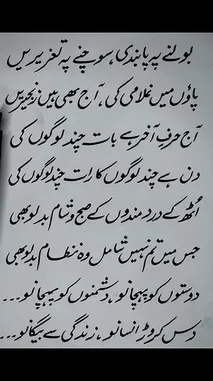 بولنے پہ پابندی، سوچنے پہ تعزیریں
پاؤں میں غلامی کی، آج بھی ہیں زنجیریں
آج حرفِ آخر ہے بات چند لوگوں کی
دن ہے چند لوگوں کا رات چند لوگوں کی
اُٹھ کے درد مندوں کے صبح و شام بدلو بھی
جس میں تم نہیں شامل وہ نظام بدلو بھی
دوستوں کو پہچانو، دشمنوں کو پہچانو...
دس کروڑ انسانو، زندگی سے بیگانو...